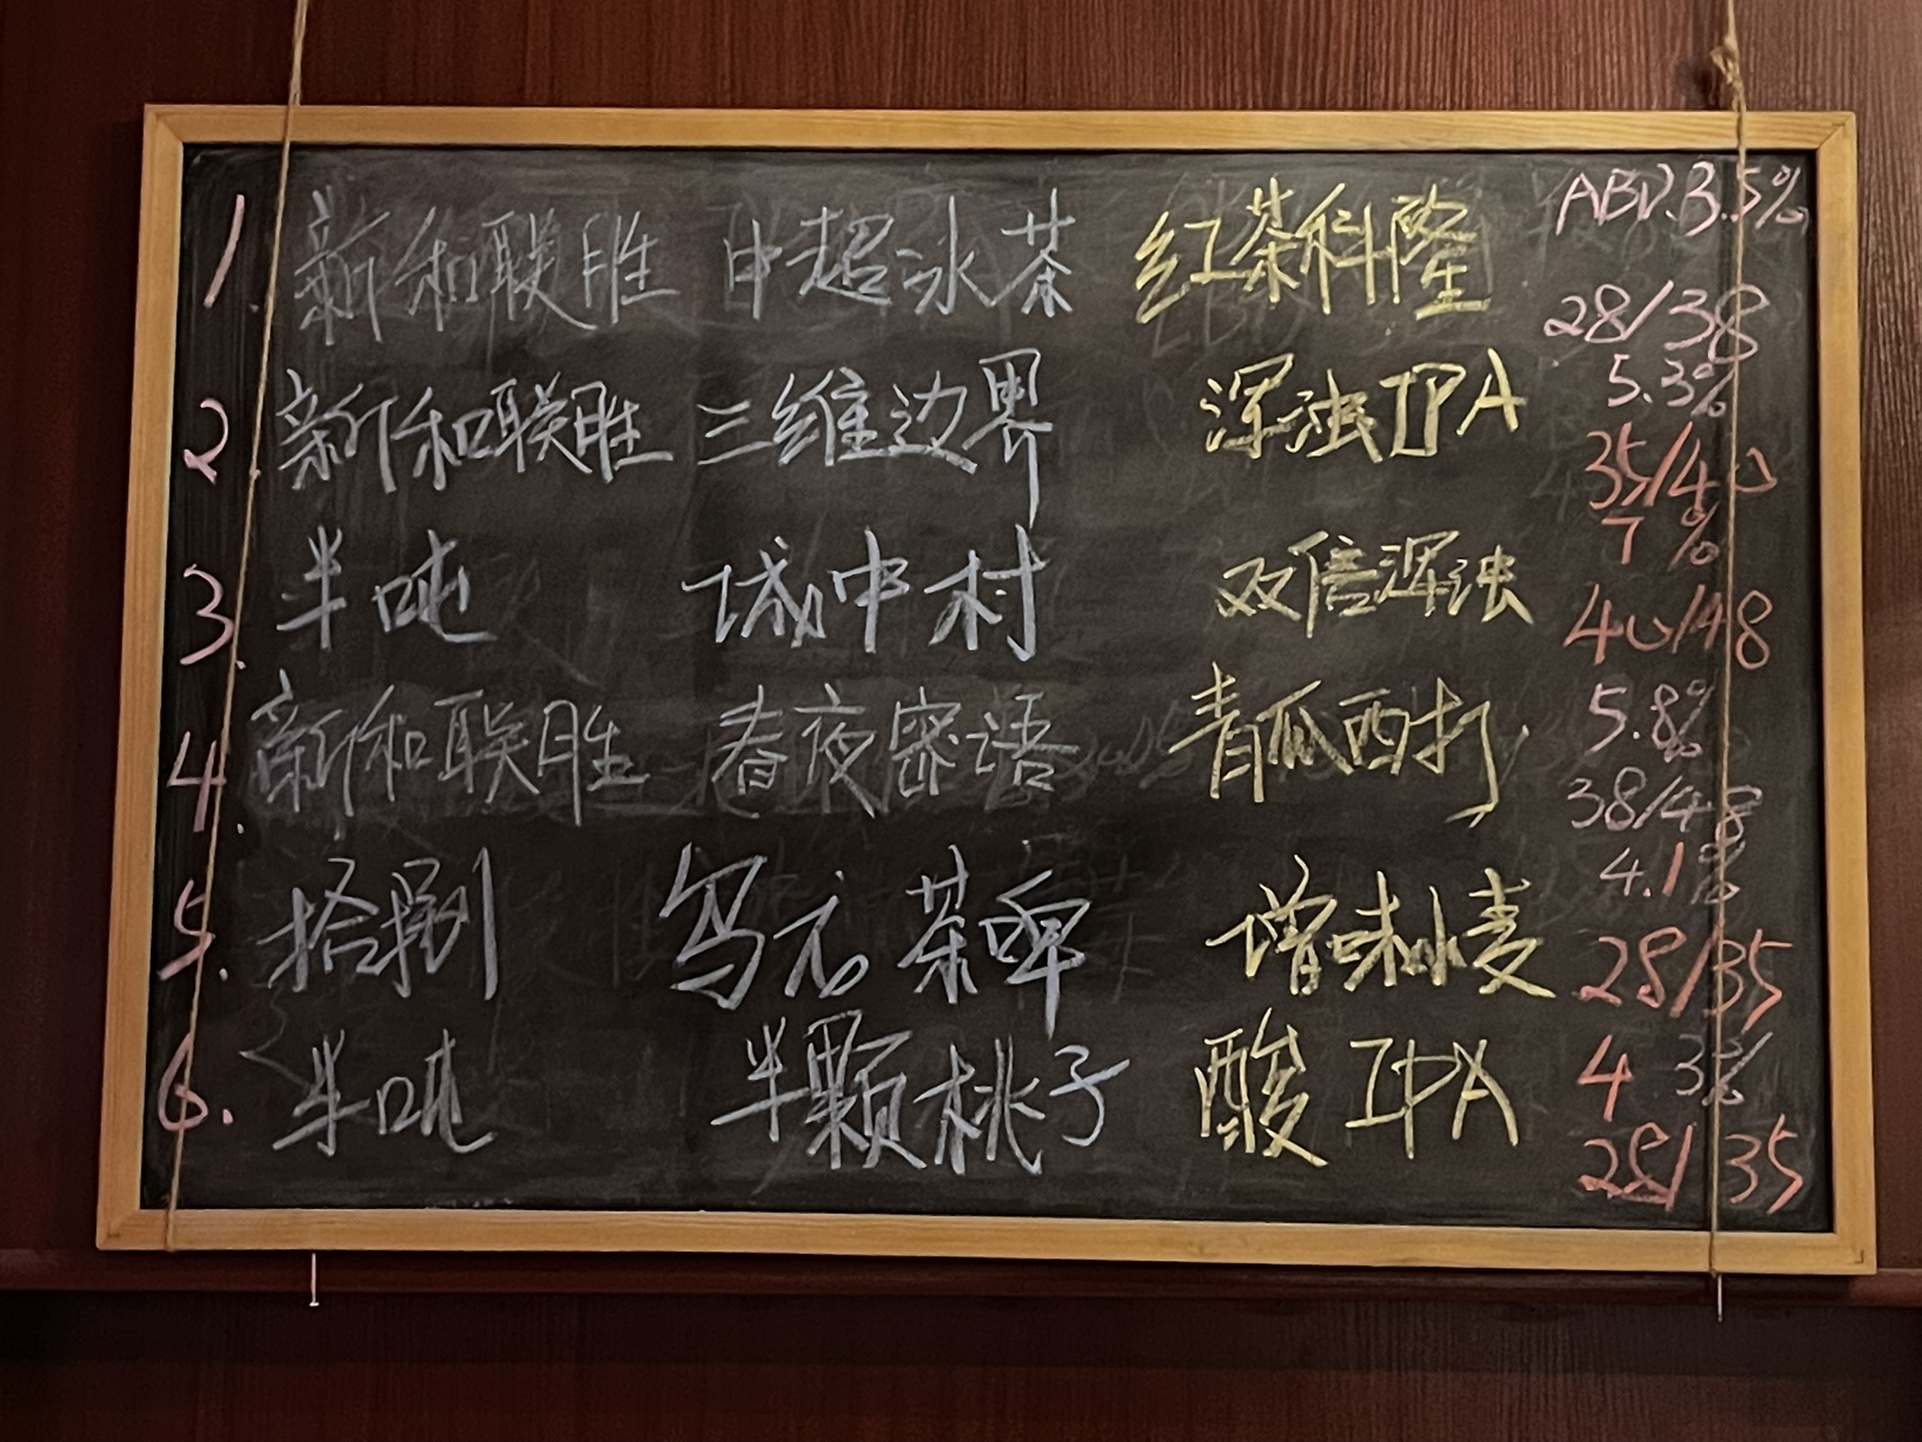 1. 新和联胜 中超冰茶 红茶科隆 ABV.3.5%
28/38
2. 新和联胜 三维边界 浑浊IPA 5.3%
35/40
3. 半吨 城中村 双倍浑浊 7%
40/48
4. 新和联胜 春夜密语 青瓜西打 5.8%
38/48
5. 拾捌 乌衣茶啤 增味小麦 4.1%
28/35
6. 半吨 半颗桃子 酸IPA 4.3%
28/35